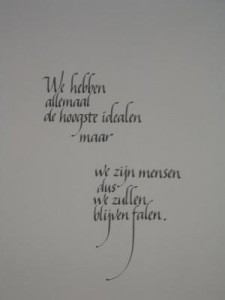 We hebben
allemaal
de hoogste idealen
maar
we zijn mensen
dus
we zullen
blijven falen.